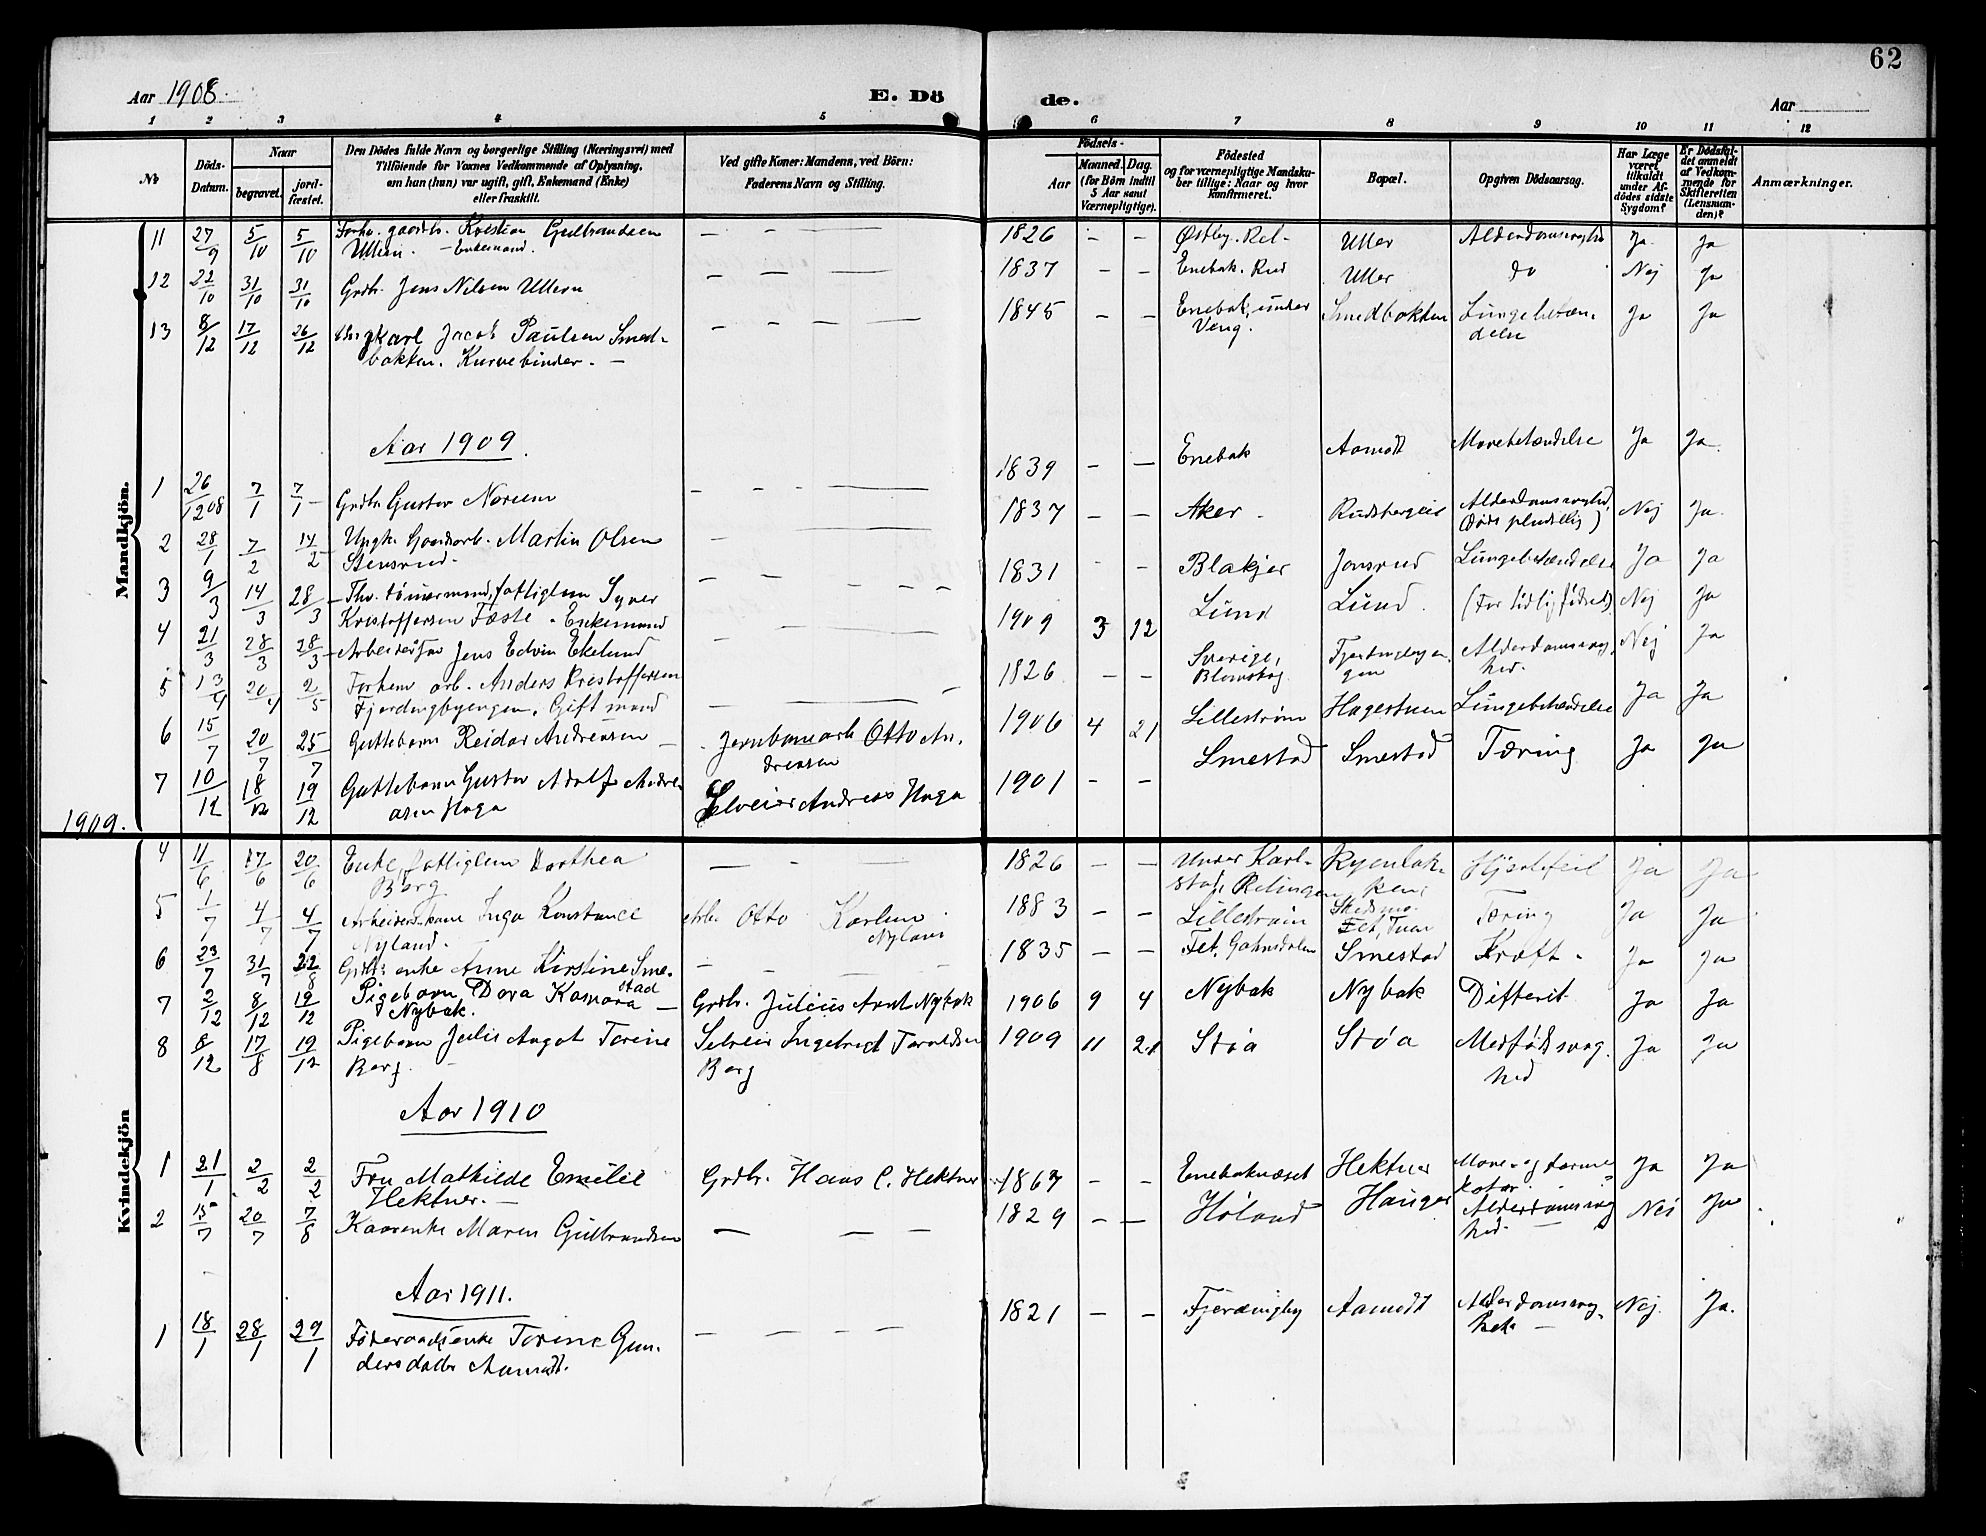 62
Aar 1908.
E. Dö de.
Aar
1 2 3 4 5 6 7 8 9 10 11 12
№
Döds-Datum.
Naar
begravet.
jord-fæstet.
Den Dödes fulde Navn og borgerlige Stilling (Næringsvei) med
Tilföiende for Voxnes Vedkommende af Oplysning,
om han (hun) var ugift, gift, Enkemand (Enke)
eller fraskilt.
Ved gifte Koner: Mandens, ved Börn:
Faderens Navn og Stilling.
Födsels-
Aar
Maaned. Dag.
(for Börn indtil
5 Aar samt
Værnepligtige).
Födested
og for værnepligtige Mandska-
ber tillige: Naar og hvor
konfirmeret.
Bopæl.
Opgiven Dödsaarsag.
Har Læge
været
tilkaldt
under Af-
dödes sidste
Sygdom?
Er Dödsfal-
det anmeldt
af Vedkom-
mende for
Skifteretten
(Lensman-
den)?
Anmærkninger.
Mandkjön.
11 27/9 5/10 5/10 Forhv. gaardbr. Kristian Gulbrandsen — — — 1826 — — Østby. Rel- Uller Alderdomssvaghd Ja. Ja
Ullern. — Enkemand.
12 22/10 31/10 31/10 Grdbr. Jens Nilsen Ullern — — — 1837 — — Enebak. Rud Uller do Nej Ja
13 8/12 17/12 26/12 Ungkarl Jacob Paulsen Smed- — — — 1845 — — Enebak, under Smedbakken Lungebetæn- Ja Ja
bakken. Kurvebinder. — Veng. delse
Aar 1909.
1 26/12 08 7/1 7/1 — Grdbr. Gustav Noreen — — — 1839 — — Enebak Aamodt Mavebetændelse Ja Ja.
2 28/1 7/2 14/2 Ungk. Gaardarb. Martin Olsen — 1837 — — Aker. Alderdomssvaghd, Nej Ja.
Stensrud. (Døde pludselig)
3 9/3 14/3 28/3 — Fhv. tømmermand, fattiglem Syver — — — 1831 - - Blakjer Jonsrud Lungebetændelse Ja Ja
Kristoffersen Fæste. Enkemand
4 21/3 28/3 28/3 — Jens Edvin Ekelund — — 1909 3 12 Lund Lund. (For tidlig fødsel) Nej Ja
5 13/4 20/4 2/5 Forhen arb. Anders Kristoffersen — — 1826 — — Sverige, Alderdomssvag- Nej Ja
Fjerdingbyengen. Gift mand Blomskog. gen hed.
6 15/7 20/7 25/7 Guttebarn Reidar Andreasen — Jernbanearb Otto An- 1906 4 21 Lillestrøm Hagestuen Lungebetændelse Ja Ja
dreasen
7 10/12 18/12 19/12 Guttebarn Gustav Adolf Andre- Selveier Andreas Haga 1901 — — Smestad Smestad Tæring Ja Ja
asen Haga
1909.
Kvindekjön
4 11/6 17/6 20/6 Enke, fattiglem Dorthea — - — 1826 — — Under Karl- Ryenbak- Hjertefeil Ja Ja
Berg stad, Relingen ken
5 1/7 4/7 4/7 Arbeiderskone Inga Konstance Arb. Otto Karlsen 1883 — — Lillestrøm Skedsmo Tæring Ja Ja
Nyland. Nyland Fet,
6 23/7 31/7 22/8 Grdbr. enke Anne Kirstine Sme- — — — 1835 — — Fet, Smestad Kræft. Ja Ja
stad
7 2/12 8/12 19/12 Pigebarn Dora Kamora — Grdbr. Julius Arnt Nybak 1906 9 4 Nybak Nybak Difterit Ja Ja
Nybak.
8 8/12 17/8 19/12 Pigebarn Julie Aagot Torine Selveier Ingebrigt Toraldsen 1909 11 21 Støa Støa Medfødt svag- Ja Ja
Berg. — Berg hed
Aar 1910
1 21/1 2/2 2/2 Fru Mathilde Emilie Grdbr. Hans C. Hektner 1867 — — Enebaknæset Hektner Mave og tarm- Ja Ja
Hektner. — katar.
2 15/7 20/7 7/8 Kaarenke Maren Gulbrandsen — — — 1829 — — Høland Hauger Alderdomssvag Nei Ja
hed.
Aar 1911.
1 18/1 28/1 29/1 Føderaadsenke Torine Gun- — — — — 1821 — — Fjerdingby Aamodt Alderdomssvag- Nej. Ja.
dersdatter Aamodt. hed. —